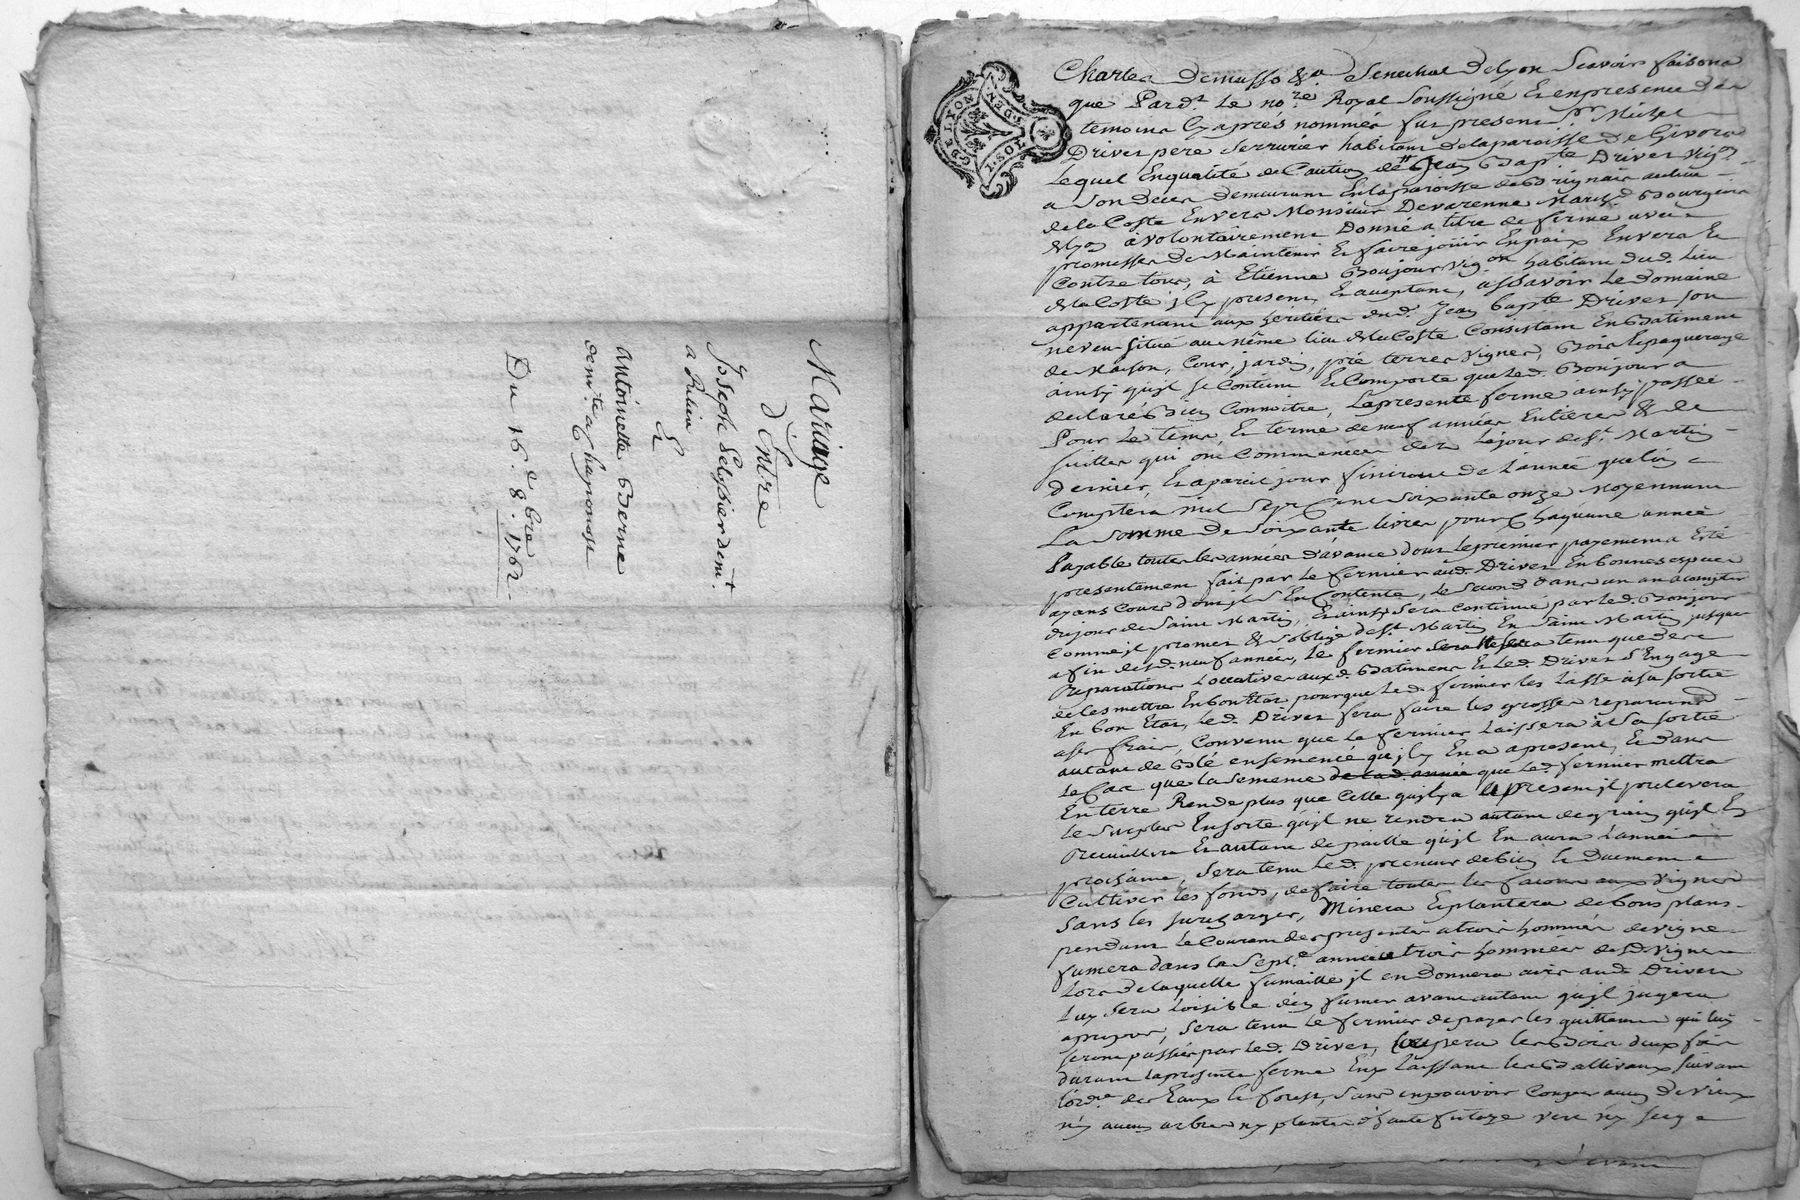 Mariage
d'Entre
Joseph demt
a
Et
Antoinette Berne
demte a Chaponost
Du 16e 8bre 1762
GDE LYON
1·SOL
DEN
Charles Demasso &a Senechal de Lyon Scavoir faisons
que Pardt Le nore Royal Soussigné Et en presence des
temoins Cy après nommés fut present Sr Michel
Drivet pere Serrurier habitant de la paroisse de Givors
Lequel En qualité de Caution de Jean Bapte Drivet vigon
a son deces demeurant En la paroisse de Brignais au lieu
de la Coste Envers Monsieur Devarenne March Bourgeois
de Lyon à volontairement Donné a titre de ferme avec
promesse de Maintenir Et faire joüir En paix Envers Et
Contre tous, à Etienne Boujour vigon habitant dud. Lieu
de la Coste jcy present Et acceptant, assavoir Le domaine
appartenant aux heritiers dud. Jean bapte Drivet son
neveu situé au même lieu de la Coste Consistant En Batiment
de Maison, Cour, jardin, pré terres vignes, Bois Et paquerage
ainsy qu'jl se Contient Et Comporte que led. Bonjour a
declaré Bien Connoitre, La presente ferme ainsy passée
Pour Le tems, Et terme de neuf années Entieres & de
suittes qui ont Commencées dez Le jour de St Martin
dernier, Et a pareil jour finiront de L'année que L'on
Comptera mil Sept Cent Soixante onze Moyennant
La Somme de Soixante livres pour Chaquune année
Payable toutes les années d'avance dont Le premier payement a Eté
presentement fait par Le fermier aud. Drivet En bonnes especes
ayant Cours dont jl s'En Contente, Le Second dans un an a compter
du jour de Saint Martin, Et ainsy Sera Continué par Led. Bonjour
Comme jl promet & s'oblige de St Martin En Saint Martin jusque
a fin desd. neuf années, Le fermier Sera tenu que des
Reparations Locatives auxd. Batiments Et Led. Drivet S'Engage
de les mettre En bon Etat pour que Led. fermier les Laisse a sa sortie
En bon Etat, Led. Drivet fera faire les grosses reparations
a ses frais, Convenu que Le fermier Laissera à sa sortie
autant de Blé ensemencé qu'jl y En a a present, Et dans
Le Cas que La Semence de lad. année que Led. fermier mettra
En terre Rende plus que Celle qu'jl y a a present jl prelevera
Le Surplus En sorte qu'jl ne rendra autant de grain qu'jl En
Recueillera Et autant de paille qu'jl En aura L'année
prochaine, Sera tenu Led. preneur de bien Et duement
Cultiver les fonds, de faire toutes les facons aux vignes
Sans les surcharger, Minera Et plantera de bons plans
pendant Le Courant des presentes a trois hommés de vigne
fumera dans la Septe année trois hommées desd. Vignes
Lors de laquelle fumaille jl en Donnera avis aud. Drivet
Luy Sera Loisible d'en fumer avant autant qu'jl jugera
apropos, Sera tenu Le fermier de payer les quittances qui luy
seront passées par Led. Drivet, Coupera les Bois deux fois
durant La presente ferme En y Laissant les Ballivaux suivant
l'ordce des Eaux & forest, Sans en pouvoir Couper aucun de vieux
n'y aucun arbre n'y plante d'haute futaye vert ny sec